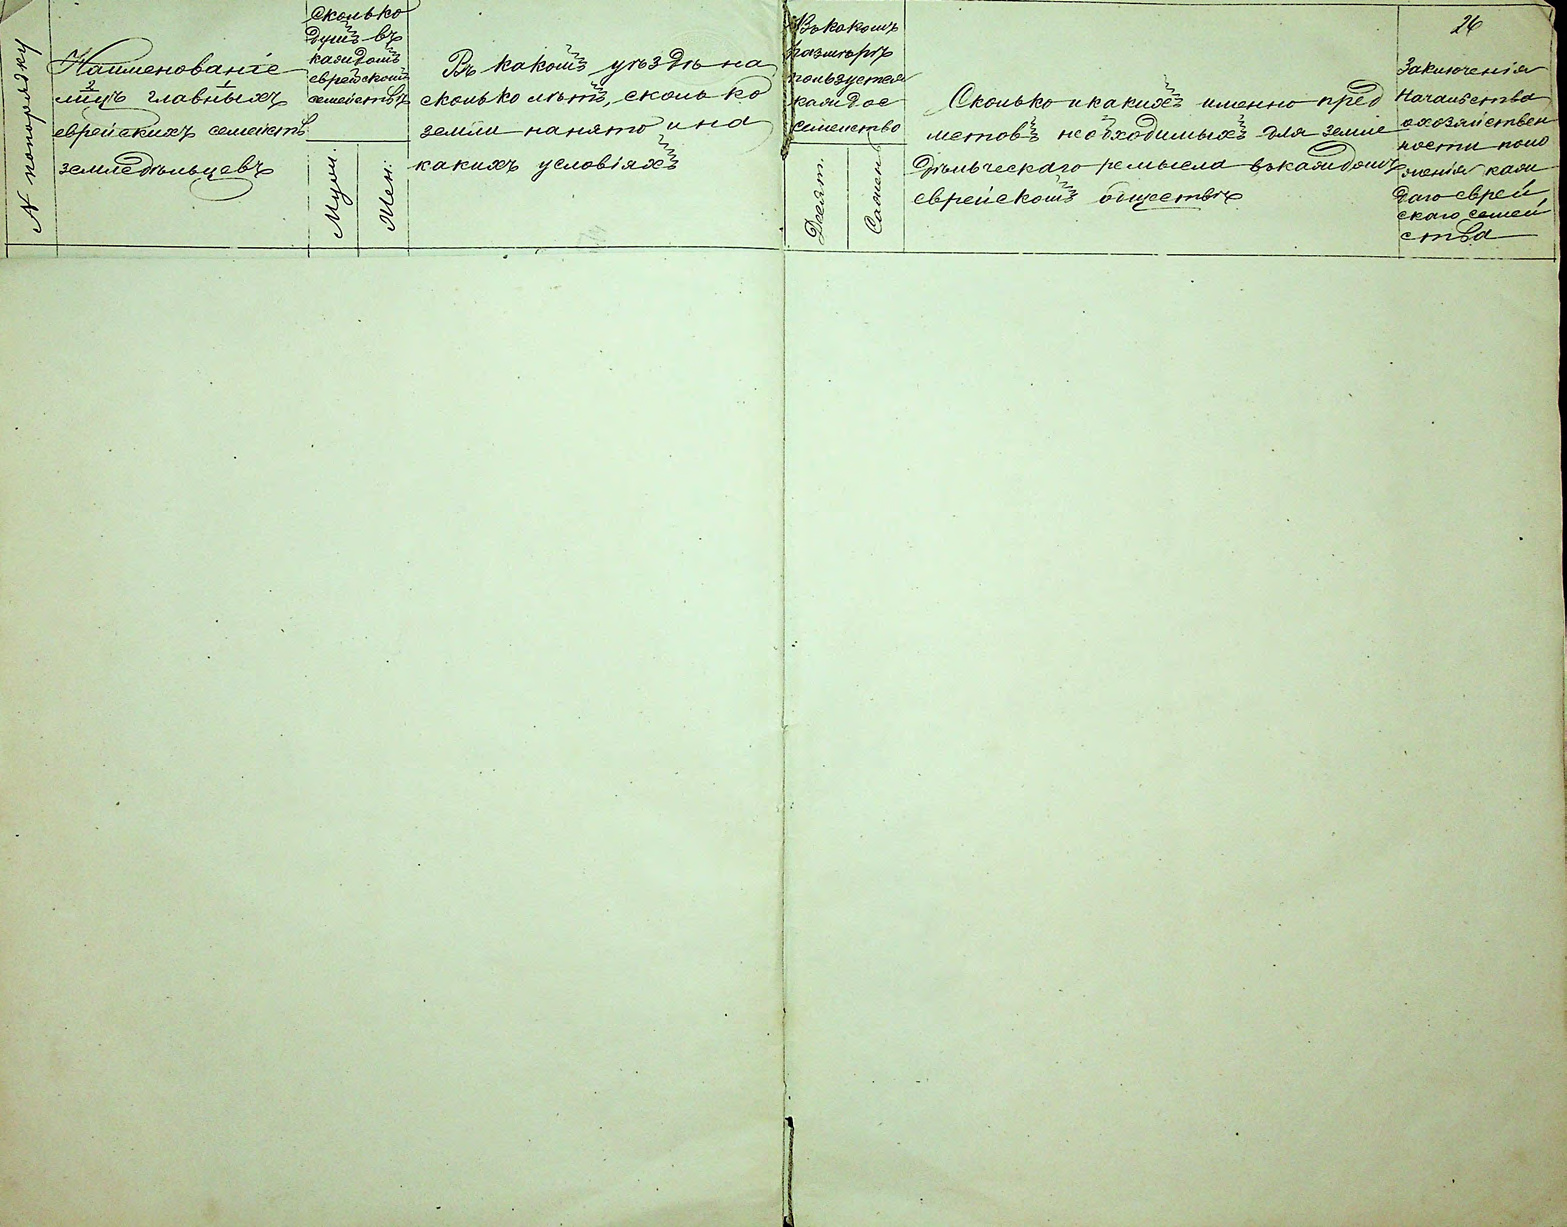 № по порядку
Наименованіе
лицъ главныхъ
еврейскихъ семействъ
земледѣльцевъ
Сколько
душъ въ
каждомъ
еврейскомъ
семействѣ
Муж.
Жен.
Въ какомъ уѣздѣ на
сколько лѣтъ, сколько
земли нанято и на
какихъ условіяхъ
Въ какомъ
размѣрѣ
пользуется
каждое
семейство
Десят.
Сажен.
Сколько и какихъ именно пред
метовъ необходимыхъ для земле
дѣльческаго ремысла въ каждомъ
еврейскомъ обществѣ
26
Заключенія
Начальства
о хозяйствен
ности поло
женія каж
даго еврей
скаго семей
ства